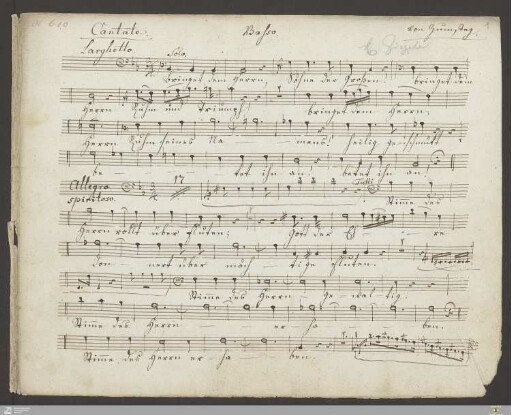 N 610
Cantate. Basso von Zumsteg.
Larghetto Solo
bringet dem Herrn, Söhne der Großen! bringet dem
Herrn Ruhm und Triumpf! bringet dem Herrn,
Herrn Ruhm seines Na - mens! heilig geschmückt
be - tet ihn an, betet ihn an!
Allegro spirituoso. 17 Tutti Stimme des
Herrn rollt über Fluten; Gott der E - re
don - nert über mäch - tige Fluten.
Stimme des Herrn - gewal - tig.
Stimme des Herrn - er ha - ben.
Stimme des Herrn er ha - ben.